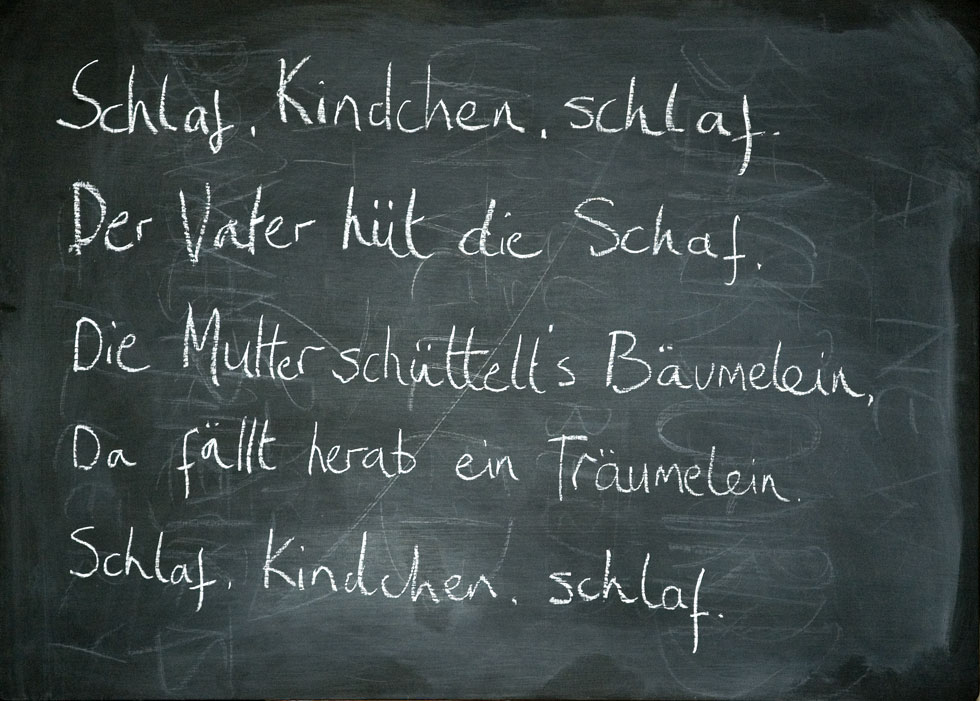 Schlaf, Kindchen, schlaf.
Der Vater hüt die Schaf.
Die Mutter schüttelt's Bäumelein,
Da fällt herab ein Träumelein.
Schlaf, Kindchen, schlaf.